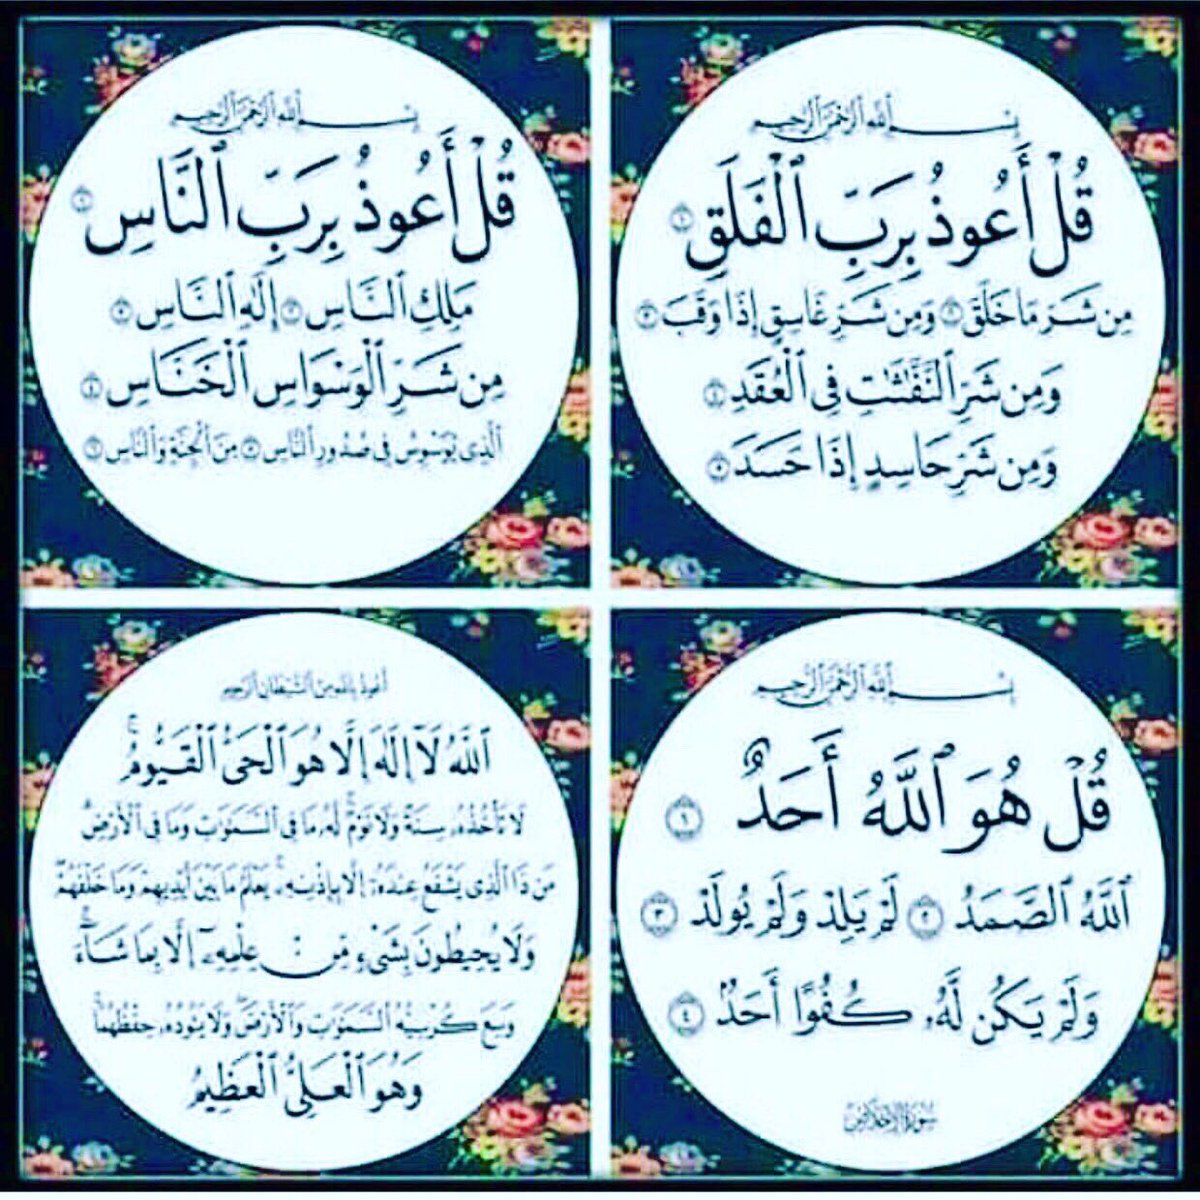 بِسْمِ ٱللَّهِ ٱلرَّحْمَٰنِ ٱلرَّحِيمِ
قُلْ أَعُوذُ بِرَبِّ ٱلْفَلَقِ ١
مِن شَرِّ مَا خَلَقَ ٢ وَمِن شَرِّ غَاسِقٍ إِذَا وَقَبَ ٣
وَمِن شَرِّ ٱلنَّفَّٰثَٰتِ فِى ٱلْعُقَدِ ٤
وَمِن شَرِّ حَاسِدٍ إِذَا حَسَدَ ٥
بِسْمِ ٱللَّهِ ٱلرَّحْمَٰنِ ٱلرَّحِيمِ
قُلْ أَعُوذُ بِرَبِّ ٱلنَّاسِ ١
مَلِكِ ٱلنَّاسِ ٢ إِلَٰهِ ٱلنَّاسِ ٣
مِن شَرِّ ٱلْوَسْوَاسِ ٱلْخَنَّاسِ ٤
ٱلَّذِى يُوَسْوِسُ فِى صُدُورِ ٱلنَّاسِ ٥ مِنَ ٱلْجِنَّةِ وَٱلنَّاسِ ٦
بِسْمِ ٱللَّهِ ٱلرَّحْمَٰنِ ٱلرَّحِيمِ
قُلْ هُوَ ٱللَّهُ أَحَدٌ ١
ٱللَّهُ ٱلصَّمَدُ ٢ لَمْ يَلِدْ وَلَمْ يُولَدْ ٣
وَلَمْ يَكُن لَّهُۥ كُفُوًا أَحَدٌۢ ٤
سورة الإخلاص
أعوذ بالله من الشيطان الرجيم
ٱللَّهُ لَآ إِلَٰهَ إِلَّا هُوَ ٱلْحَىُّ ٱلْقَيُّومُ ۚ
لَا تَأْخُذُهُۥ سِنَةٌ وَلَا نَوْمٌ ۚ لَّهُۥ مَا فِى ٱلسَّمَٰوَٰتِ وَمَا فِى ٱلْأَرْضِ ۗ
مَن ذَا ٱلَّذِى يَشْفَعُ عِندَهُۥٓ إِلَّا بِإِذْنِهِۦ ۚ يَعْلَمُ مَا بَيْنَ أَيْدِيهِمْ وَمَا خَلْفَهُمْ ۖ
وَلَا يُحِيطُونَ بِشَىْءٍ مِّنْ عِلْمِهِۦٓ إِلَّا بِمَا شَآءَ ۚ
وَسِعَ كُرْسِيُّهُ ٱلسَّمَٰوَٰتِ وَٱلْأَرْضَ ۖ وَلَا يَـُٔودُهُۥ حِفْظُهُمَا ۚ
وَهُوَ ٱلْعَلِىُّ ٱلْعَظِيمُ